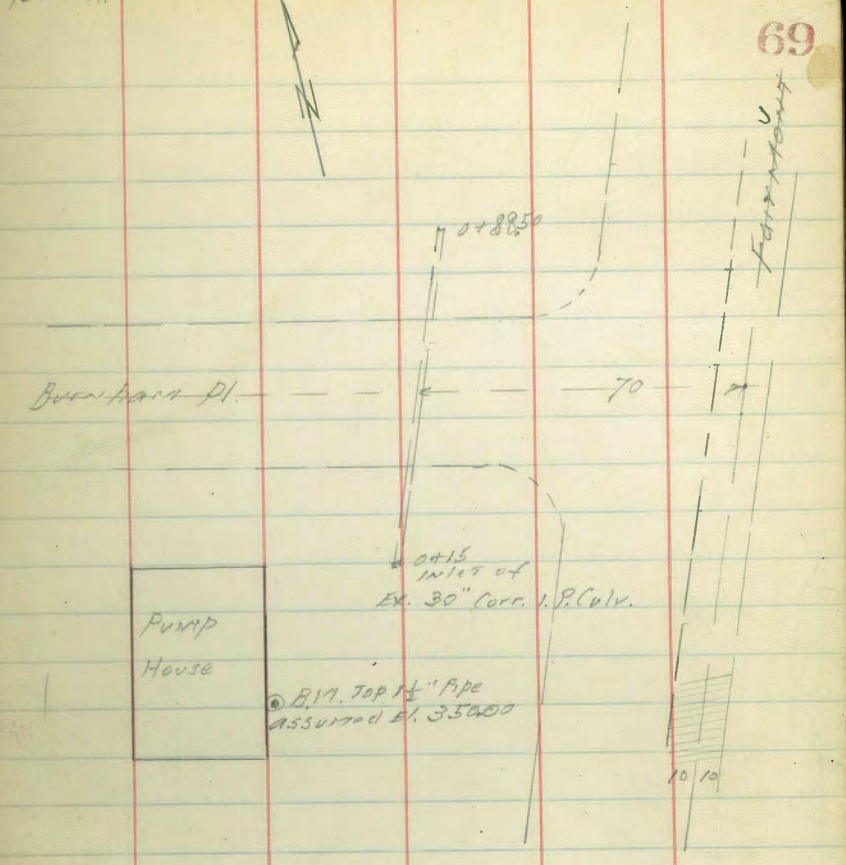 69
Fairmount
0+89.50
Burnham Pl.
70
0+15
Inlet of
Ex. 30" Corr. I. P. Culv.
Pump
House
B.M. Top 1½" Pipe
assumed El. 350.00
10 10